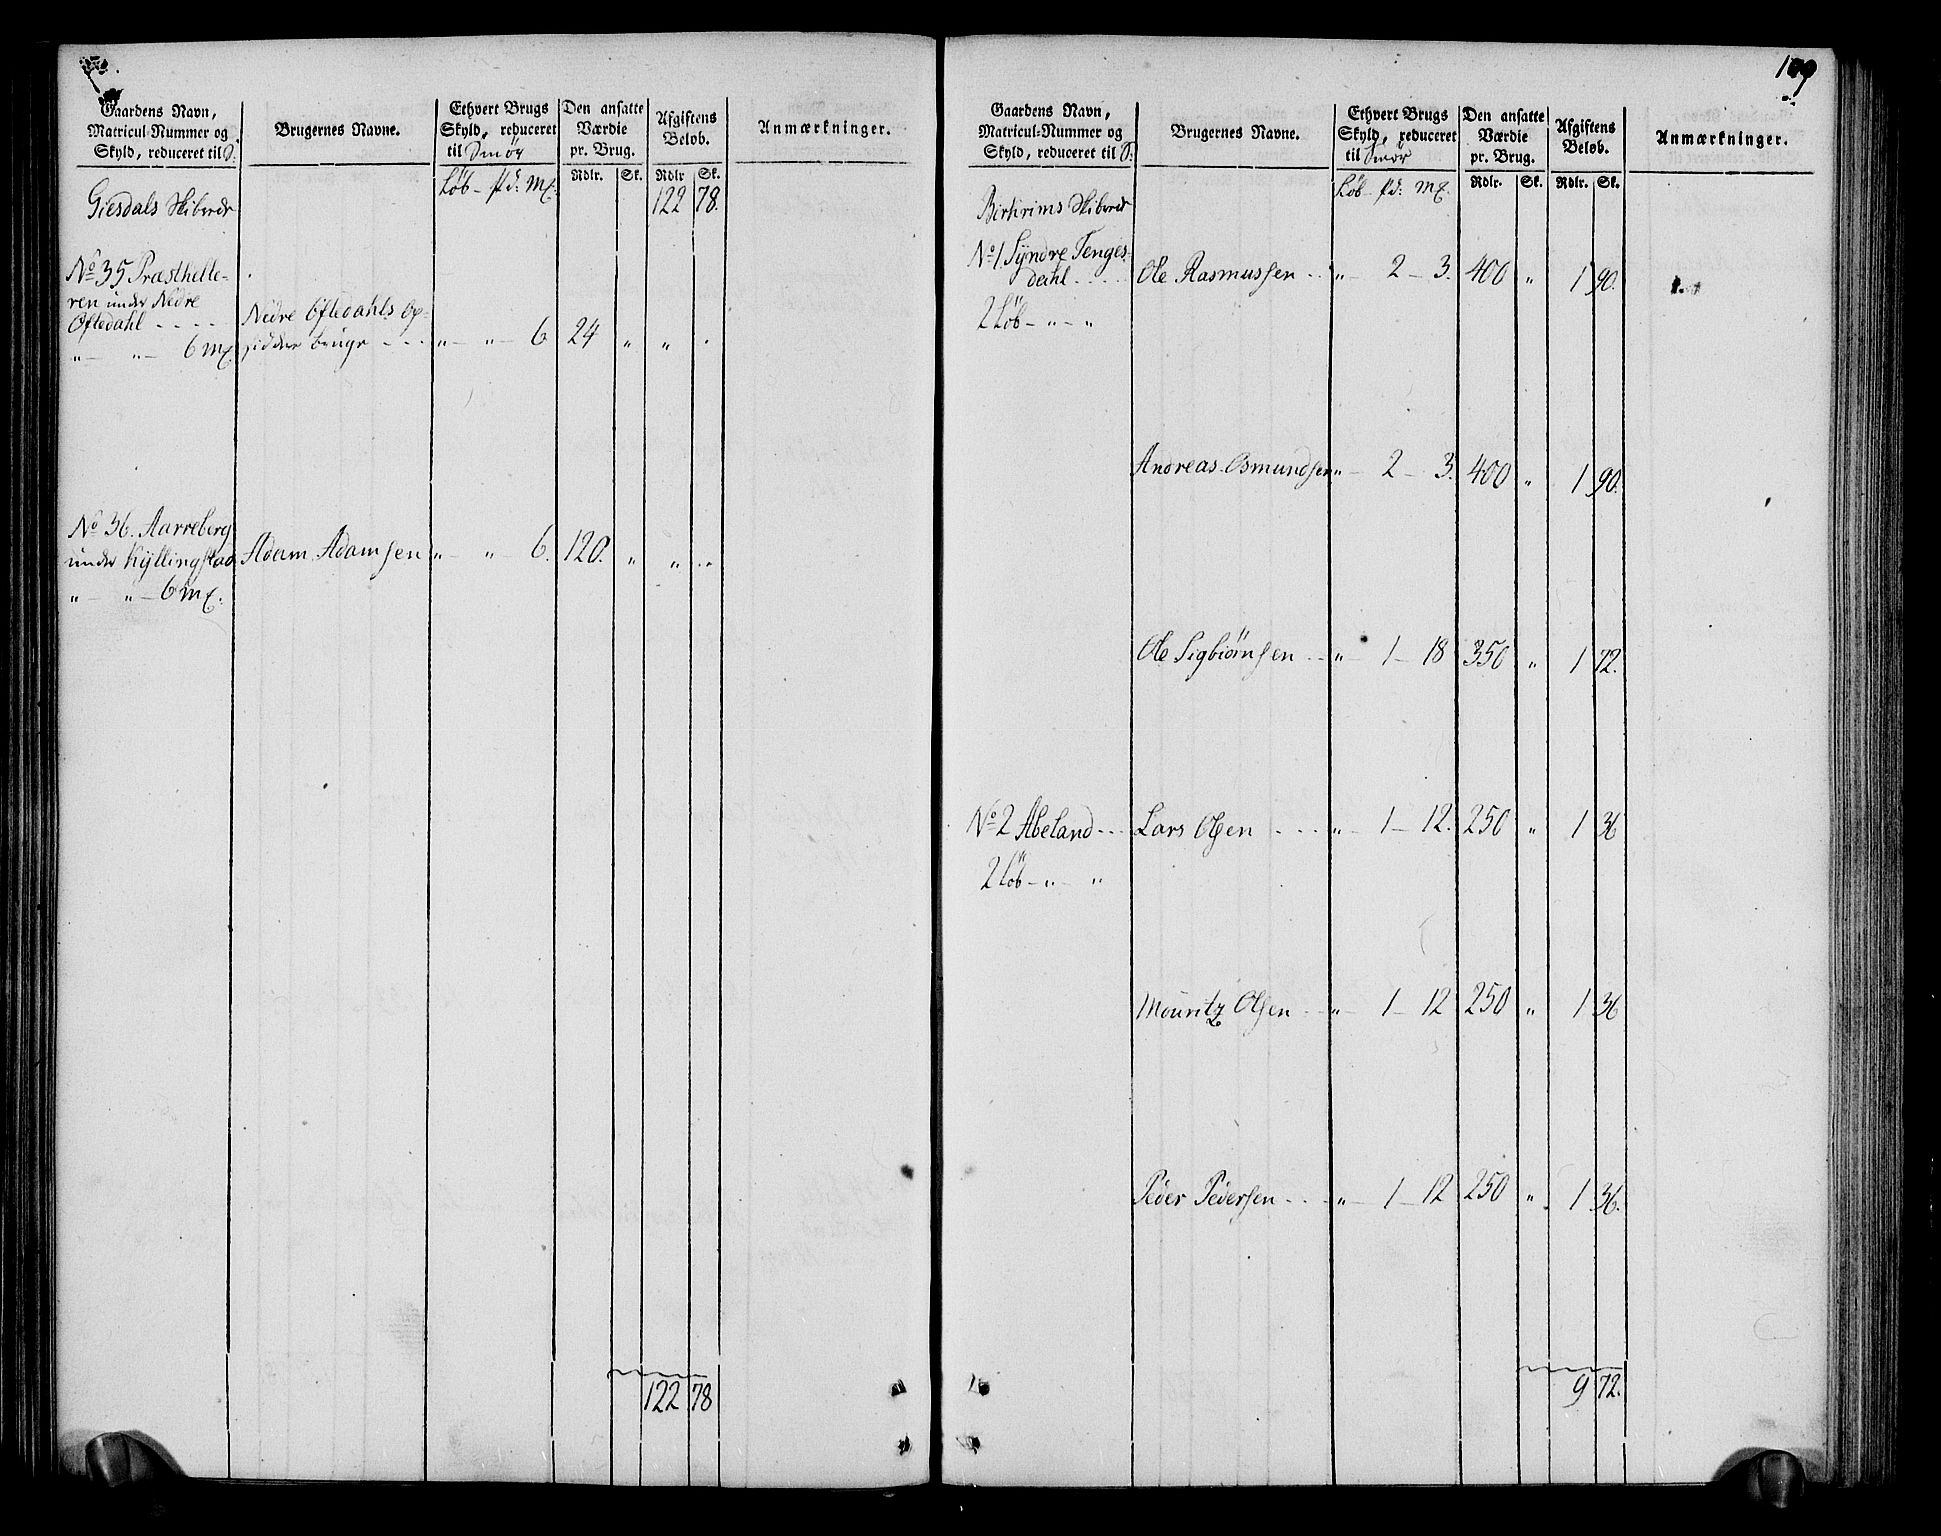 Gaardens Navn,
Matricul-Nummer og
Skyld, reduceret til S:
Brugernes Navne.
Ethvert Brugs
Skyld, reduceret
til Smør
Den ansatte
Værdie
pr. Brug.
Afgiftens
Beløb.
Anmærkninger.
Rdlr. Sk. Rdlr Sk.
Løb - pd: mk:
Giesdals Skibrede 122 78.
No 35 Præsthelle-
ren under Nedre
Oftedahl - - - -
Nedre Oftedahls Op-
" - " - 6 mk. sidder bruge - - - " - " - 6 24 " "
No 36. Aarreberg
under Kyllingstad Adam Adamsen " - " - 6. 120. " " "
" - " - 6 mk.
122 78
109
Gaardens Navn,
Matricul-Nummer og
Skyld, reduceret til S:
Brugernes Navne.
Ethvert Brugs
Skyld, reduceret
til Smør
Den ansatte
Værdie
pr. Brug.
Afgiftens
Beløb.
Anmærkninger.
Rdlr. Sk. Rdlr. Sk.
Løb - pd: mk.
Birkrims Skibrede
No 1. Syndre Tenges-
dahl - - - - Ole Rasmussen - - " - 2 - 3. 400 " 1 90.
2 Løb - " - "
Andreas Osmundsen " - 2 - 3. 400 " 1 90.
Ole Sigbiørnsen - - " - 1 - 18 350 " 1 72.
No 2 Abeland - - - Lars Olsen - - - " - 1 - 12. 250 " 1 36
2 Løb - " - "
Mouritz Olsen - - " - 1 - 12 250 " 1 36
Peder Pedersen - - - " - 1 - 12 250 " 1 36.
9 72.